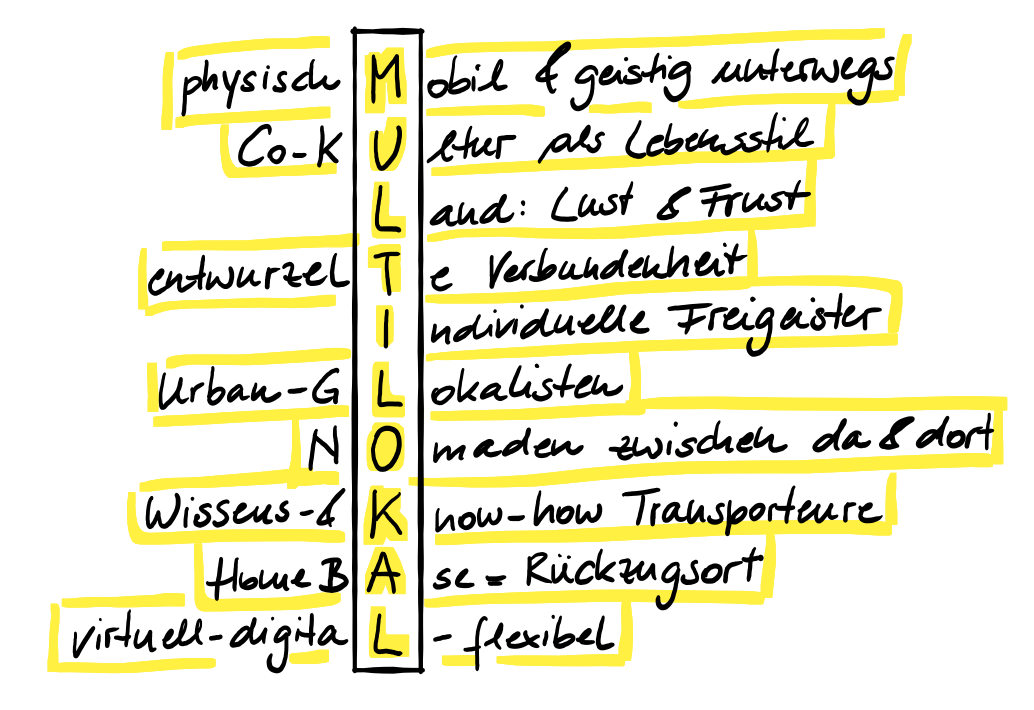 physisch Mobil & geistig unterwegs
Co-KUltur als Lebensstil
Land: Lust & Frust
entwurzelTe Verbundenheit
Individuelle Freigeister
Urban-GLokalisten
NOmaden zwischen da & dort
Wissens-& Know-how Transporteure
HomeBAse = Rückzugsort
virtuell-digitaL-flexibel